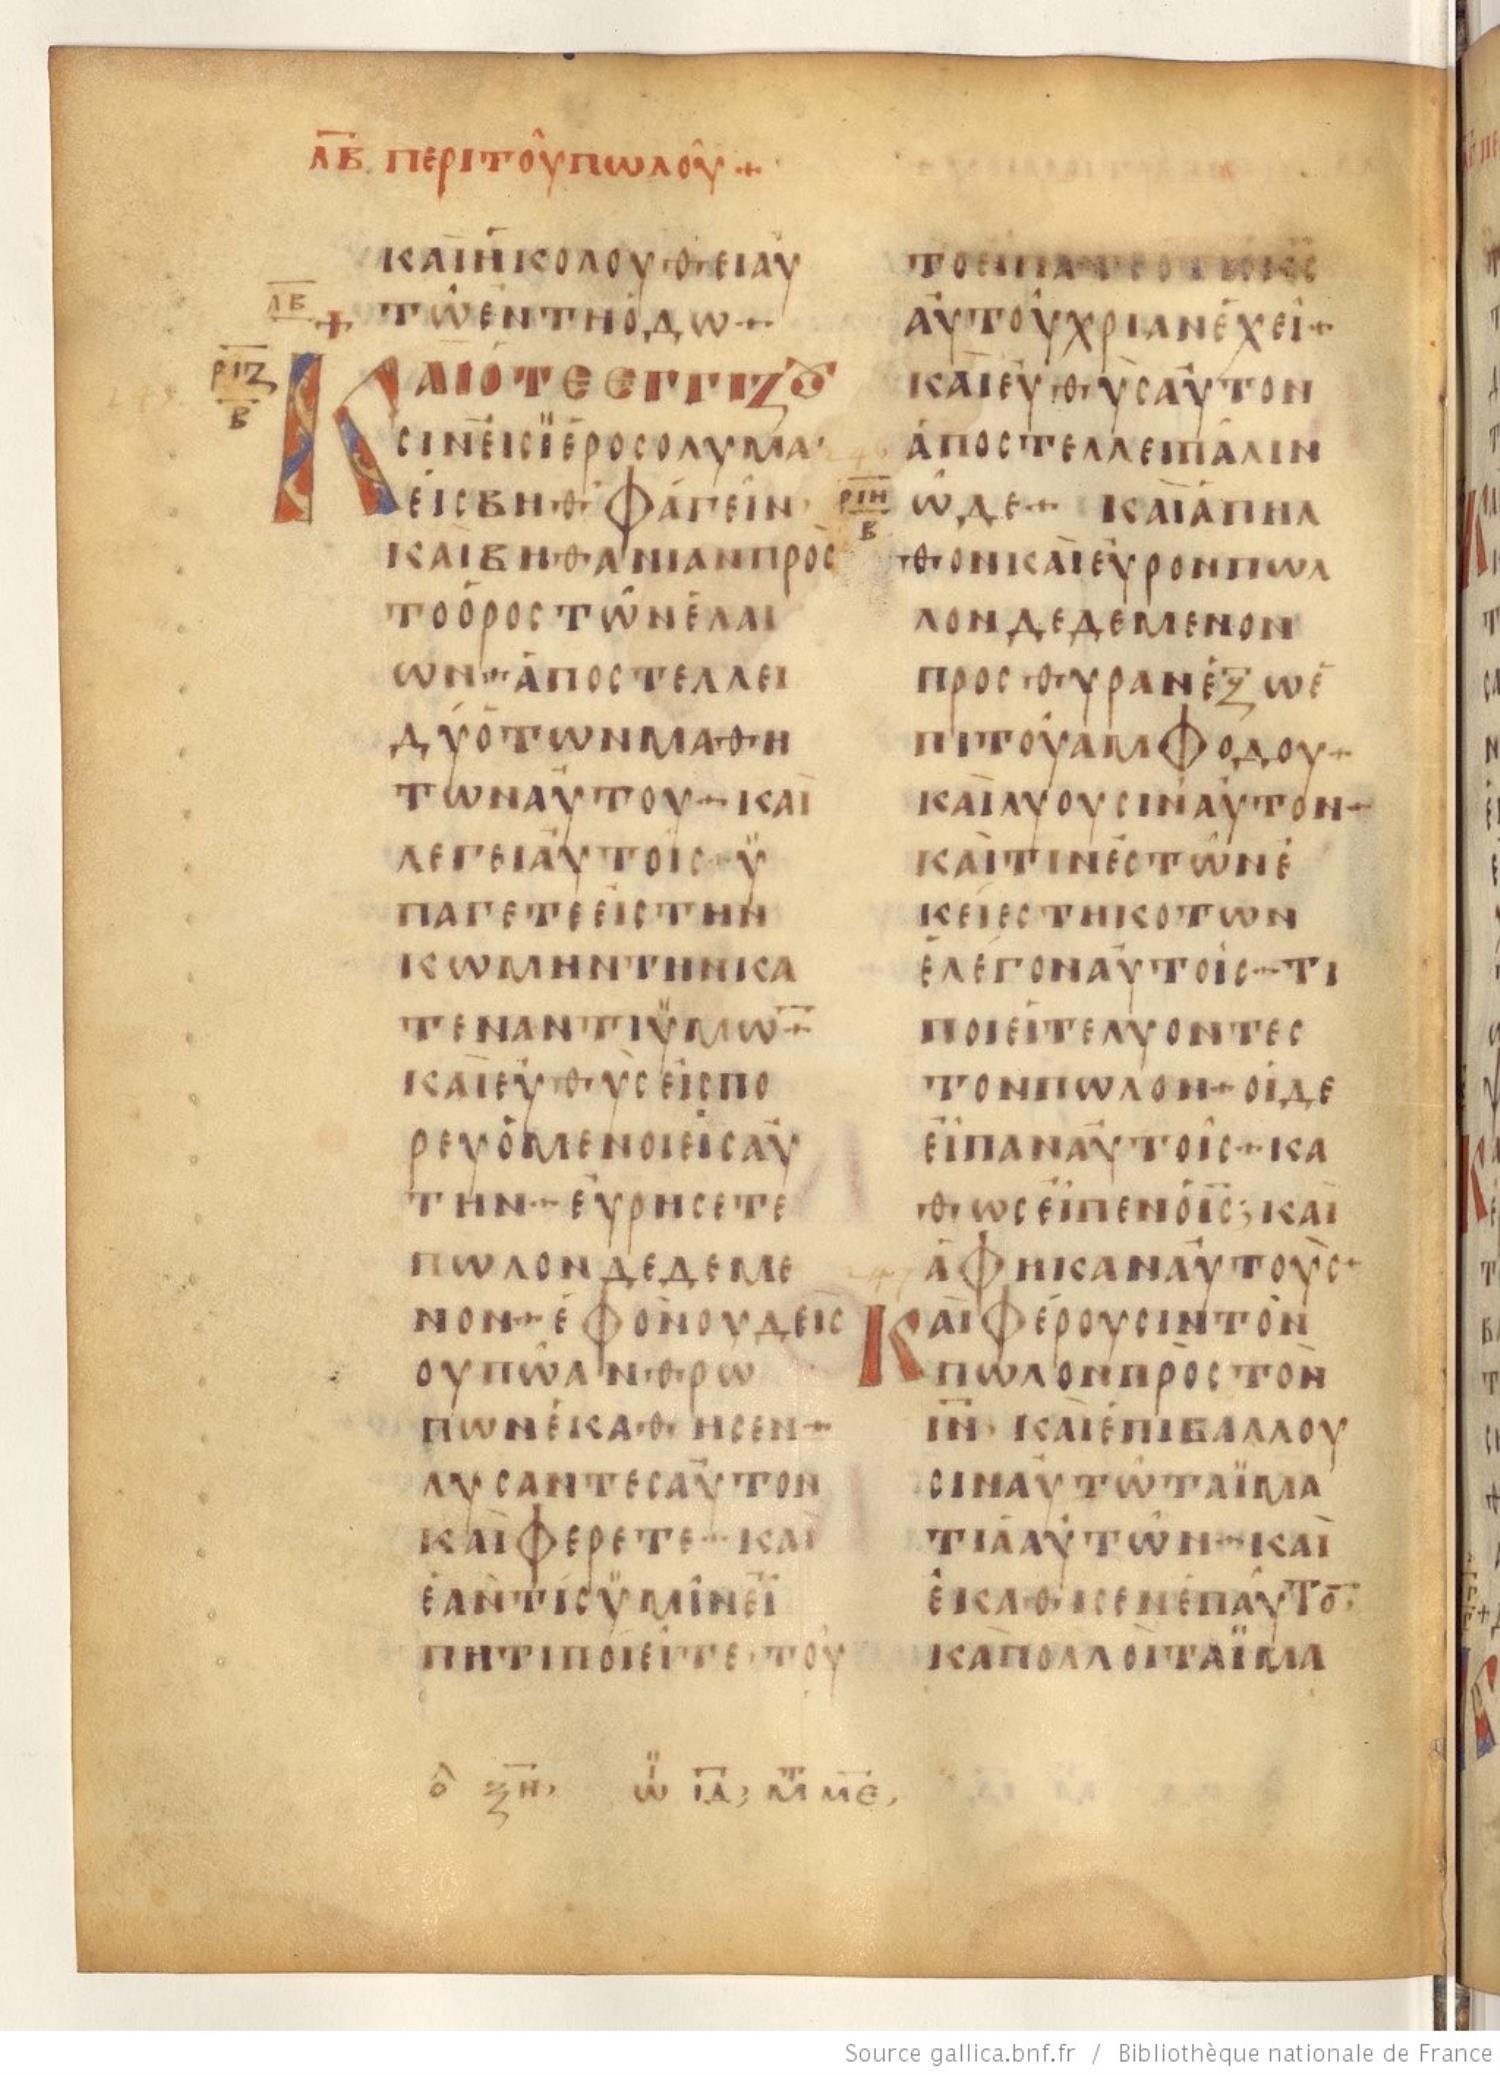 λ̅β̅ περιτοῦπώλοῦ+
καιἠκολουθειαυ
λ̅β̅
τῶἐντηὁδω+
ριζ
β
Καιότεεγγιζȣ
σινεἰςϊεροσολυμα·
εἰςβηθφαγεῖν·
καιβηθανιανπρος
τοόροςτῶνἐλαι
ων+ἀποστελλει
δύοτωνμαθη
τωναυτου+και
λεγειαυτοις·ϋ
παγετεεἰςτην
κωμηντηνκα
τεναντιϋμω̅+
καιευθὺςεἰςπο
ρευόμενοιεἰςαυ
την+εὑρησετε
πωλονδεδεμε
νον+ἐφὃνουδεὶς
ουπῶανθρώ
πωνἐκαθησεν+
λυσαντεςαυτον
καιφερετε+και
ἐάντιςϋμῖνεἴ
πητιποιεῖτε·τοῦ
τοεἰπατεοτιοκ̅ς̅
αὐτοῦχριανἔχει+
καὶευθὺςαὐτον
ἀποστελλειπάλιν
ριη
β
ὧδε+ καὶἀπηλ
θονκαὶεὑρονπωλ
λονδεδεμενον
προςθυρανἔξωἐ
πιτοῦαμφοδου+
καὶλυουσιναὐτον+
καίτινέςτῶνἐ
κεῖεστηκοτων
ἔλεγοναὐτοῖς+τι
ποιεῖτελυοντες
τονπωλον+οἱδε
εἶπαναὐτοῖς+κα
θωςεἶπενὁι̅ς̅;καὶ
ἀφηκαναὐτοὺς+
Καὶφέρουσιντὸν
πωλονπρὸςτὸν
ι̅ν̅· καὶἐπιβαλλου
σιναὐτῶταϊμα
τιάαὐτῶν+καὶ
ἐκαθισενἐπαὐτο̅;
καπολλοὶταϊμα
ὁ ξη, ἰω ι̅δ̅; μτ μ̅ε̅,
Source gallica.bnf.fr / Bibliothèque nationale de France